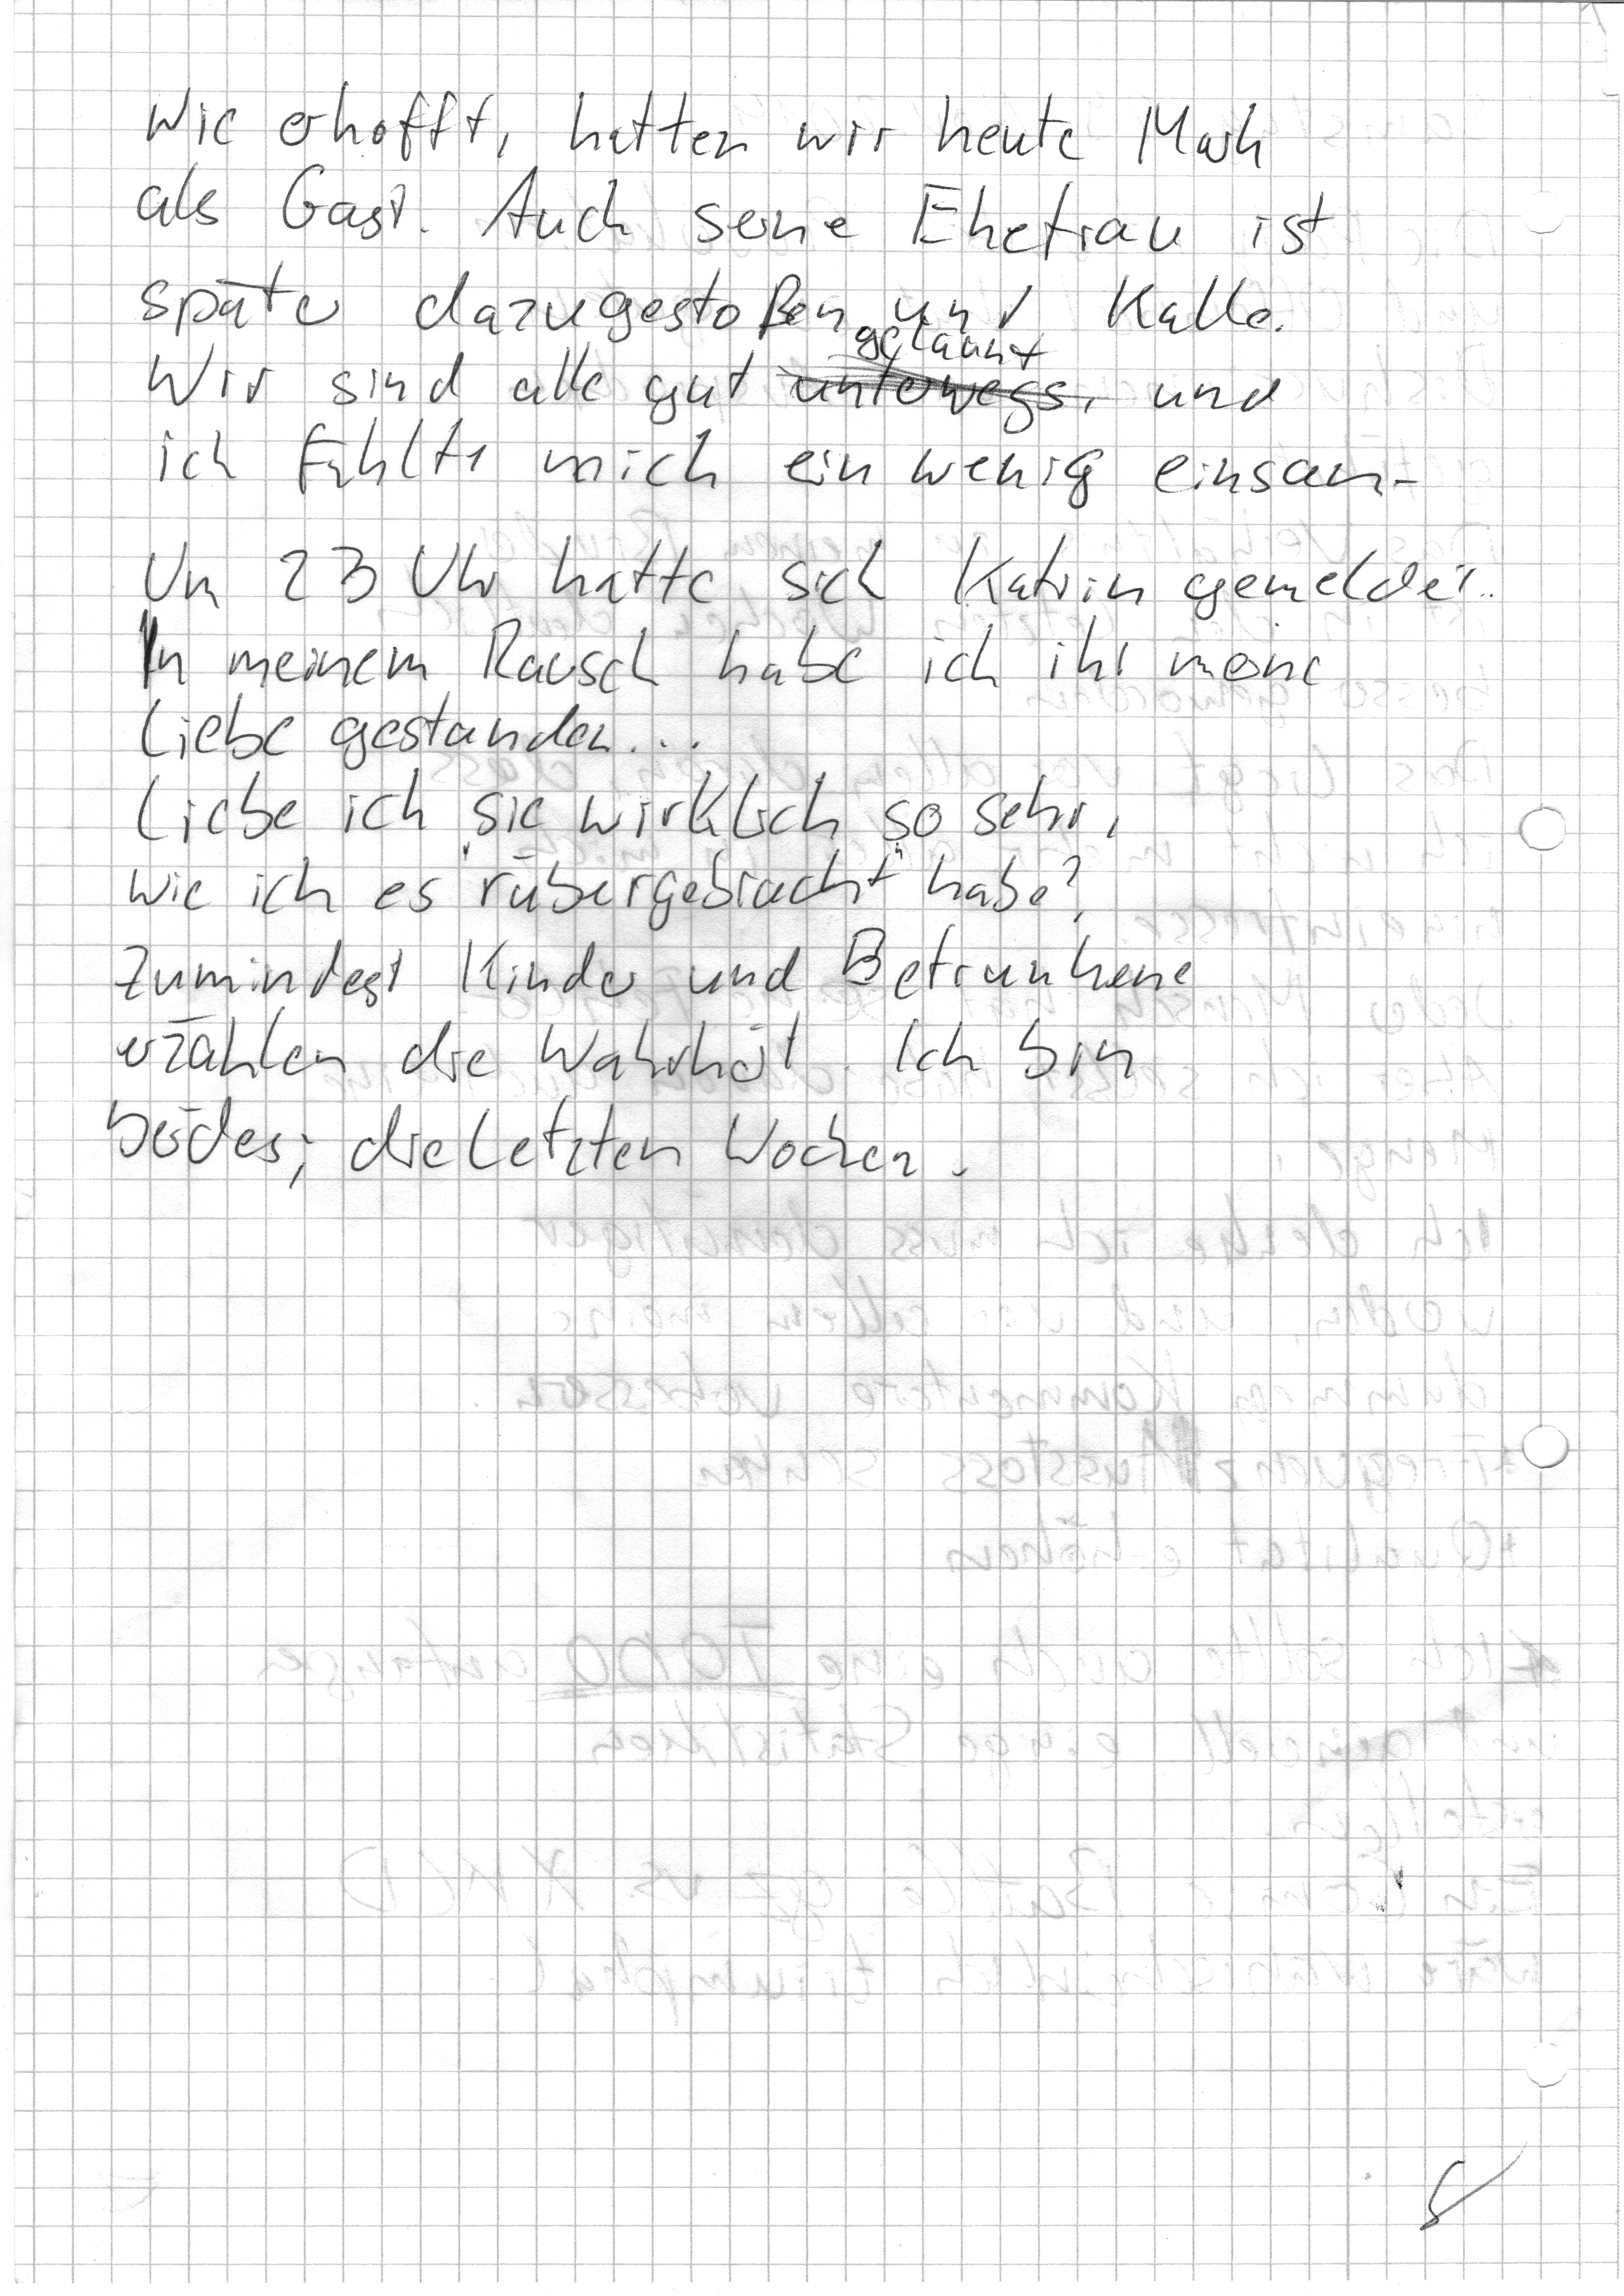 Wie erhofft, hatten wir heute Mark
als Gast. Auch seine Ehefrau ist
später dazugestoßen und Kalle.
Wir sind alle gut unterwegs, gelaunt und
ich fühlte mich ein wenig einsam.
Um 23 Uhr hatte sich Katrin gemeldet..
In meinem Rausch habe ich ihr meine
Liebe gestanden...
Liebe ich sie wirklich so sehr,
wie ich es "rübergebracht" habe?
Zumindest Kinder und Betrunkene
erzählen die Wahrheit. Ich bin
beides; die letzten Wochen.
8